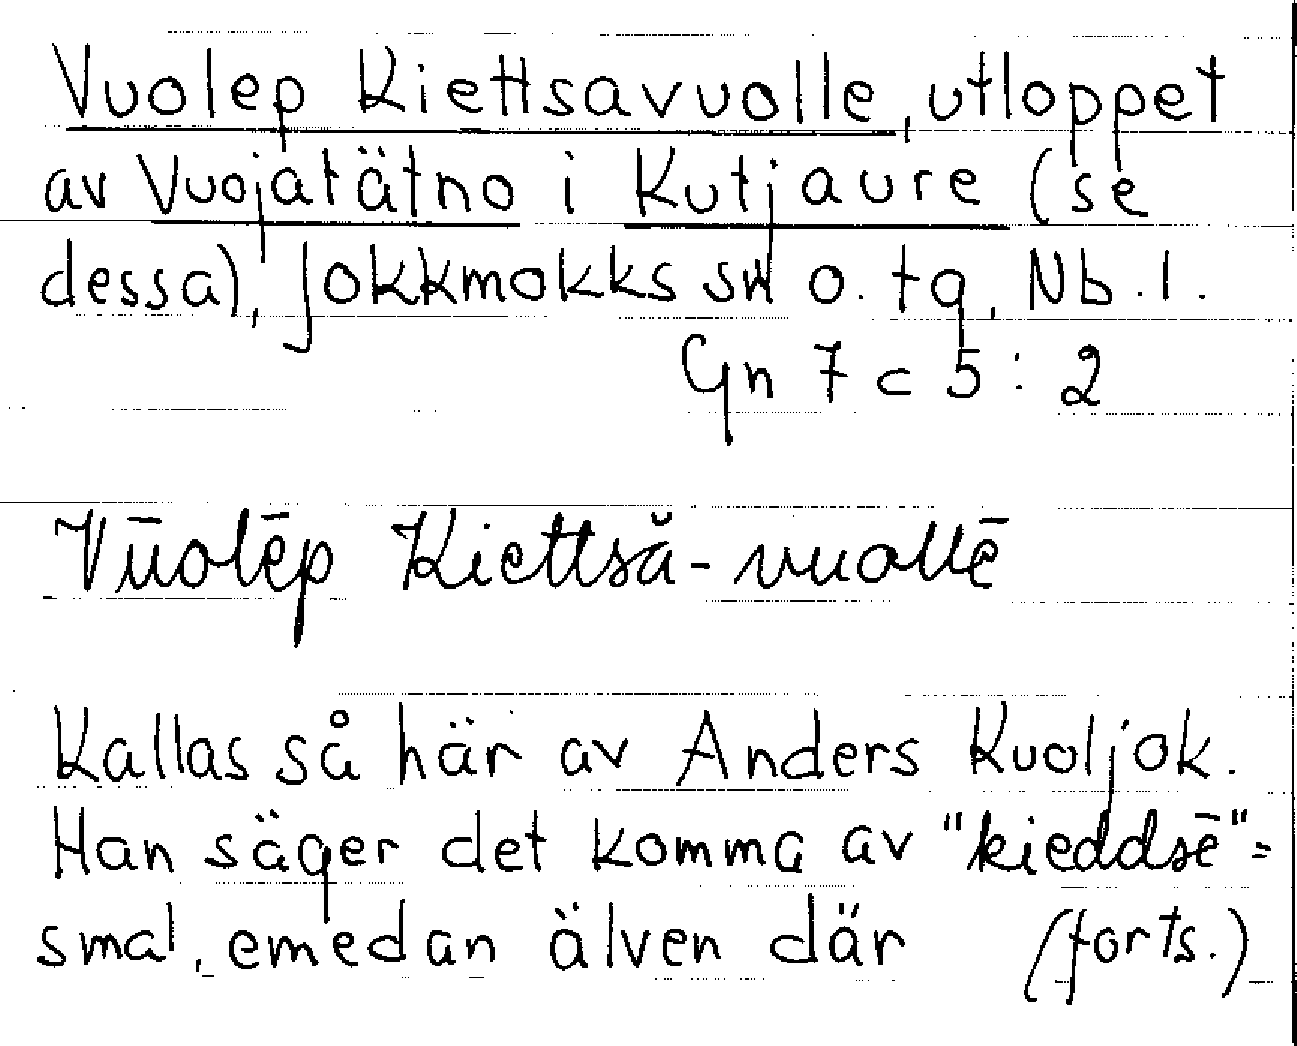 Vuolep Kiettsavuolle, utloppet
av Vuojatätno i Kutjaure (se
dessa), Jokkmokks sn o. tg, Nb. l.
Gn 7 c 5 : 2
Vūolēp Kiettsă-vuollē
Kallas så här av Anders Kuoljok.
Han säger det komma av "kieddsē" =
smal, emedan älven där (forts.)